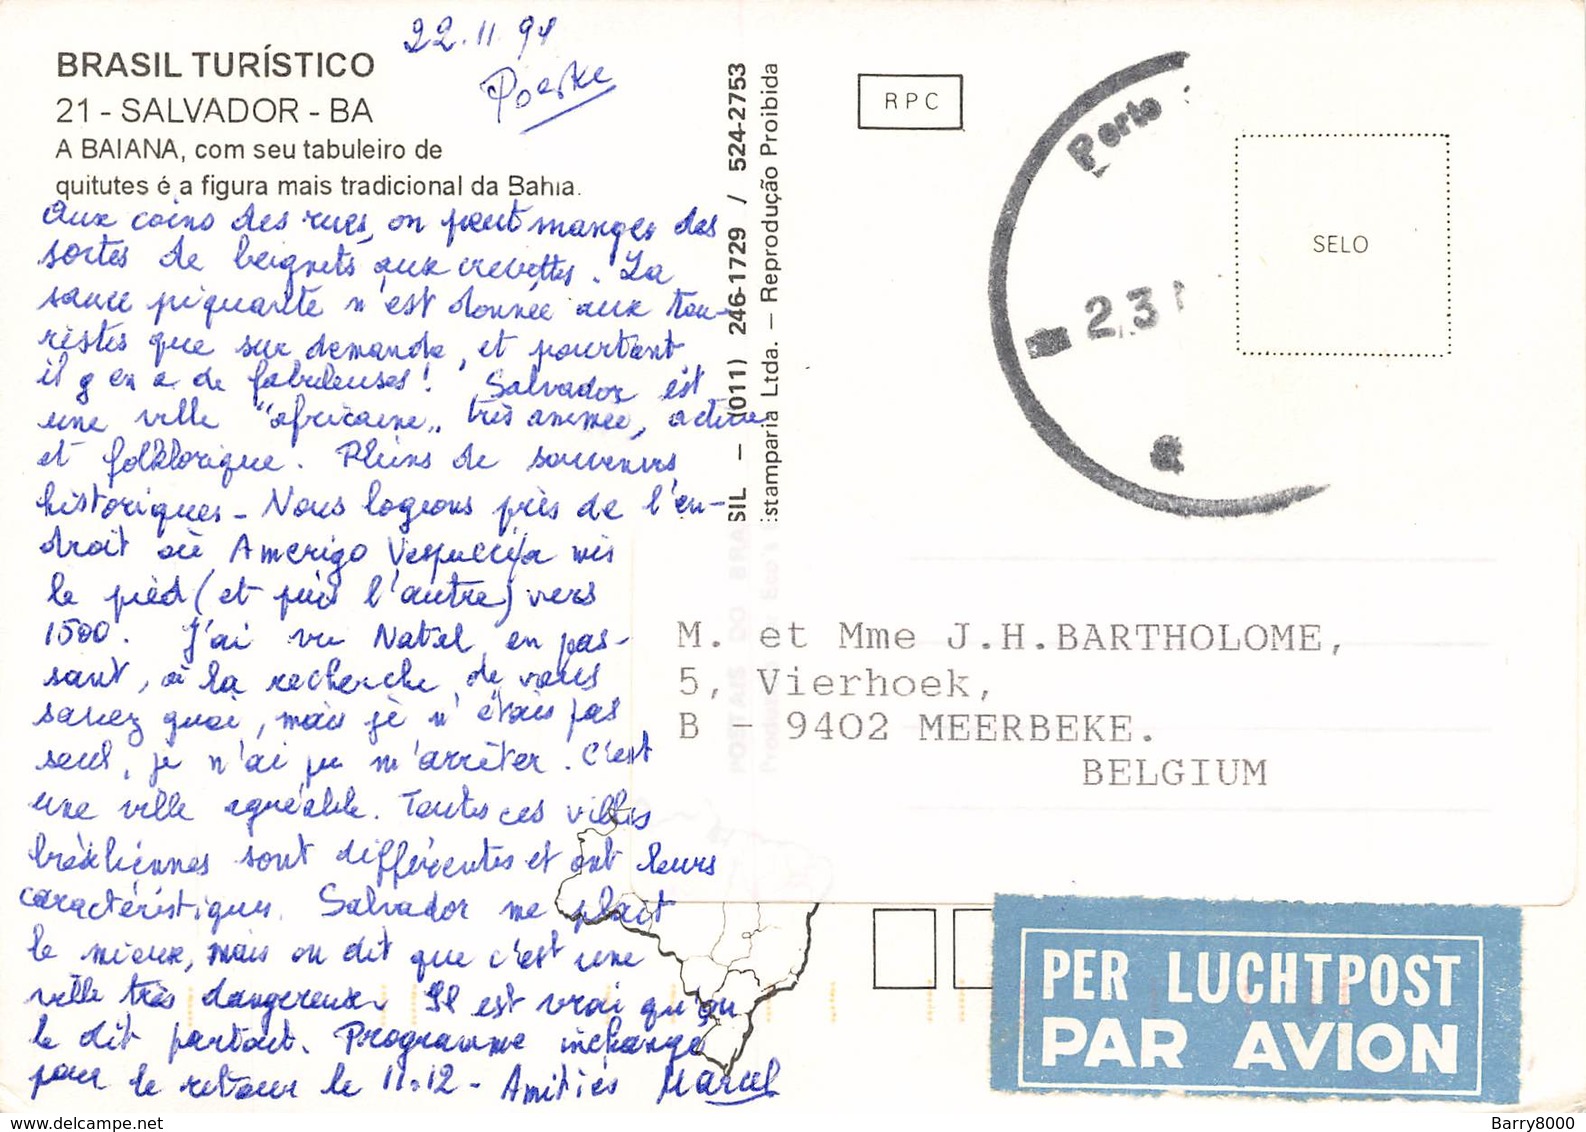 22.11.94
BRASIL TURÍSTICO
21 - SALVADOR - BA
A BAIANA, com seu tabuleiro de
quitutes é a figura mais tradicional da Bahia.
Aux coins des rues, on peut manger des
sortes de beignets aux crevettes. La
sauce piquante n'est donnée aux tou-
ristes que sur demande, et pourtant
il y en a de fabuleuses! Salvador est
une ville "africaine" très animée, active
et folklorique. Pleins de souvenirs
historiques - Nous logeons près de l'en-
droit où Amerigo Vespucci a mis
le pied (et puis l'autre) vers
1500. J'ai vu Natal, en pas-
sant, à la recherche de vous
savez quoi, mais je n'étais pas
seul, je n'ai pu m'arrêter. C'est
une ville agréable. Toutes ces villes
brésiliennes sont différentes et ont leurs
caractéristiques. Salvador me plait
le mieux, mais on dit que c'est une
ville très dangereuse. Il est vrai qu'on
le dit partout. Programme inchangé
pour le retour le 11.12 - Amitiés Marcel
SIL - (011) 246-1729 / 524-2753
Estamparia Ltda. - Reprodução Proibida
POSTAIS DO BRA
RPC
Porto
23
SELO
M. et Mme J.H.BARTHOLOME,
5, Vierhoek,
B - 9402 MEERBEKE.
BELGIUM
PER LUCHTPOST
PAR AVION
Barry8000